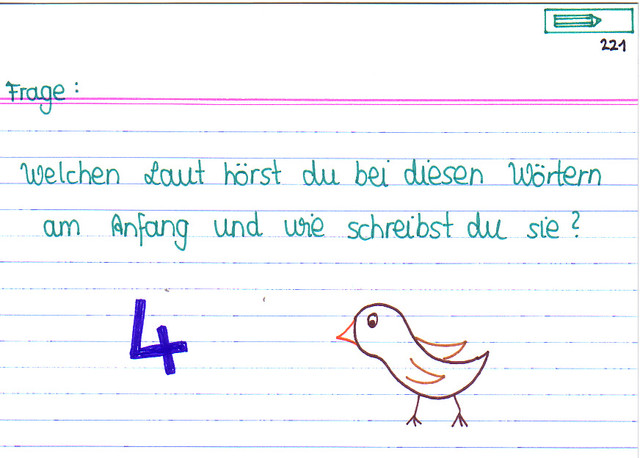 221
Frage:
Welchen Laut hörst du bei diesen Wörtern
am Anfang und wie schreibst du sie?
4